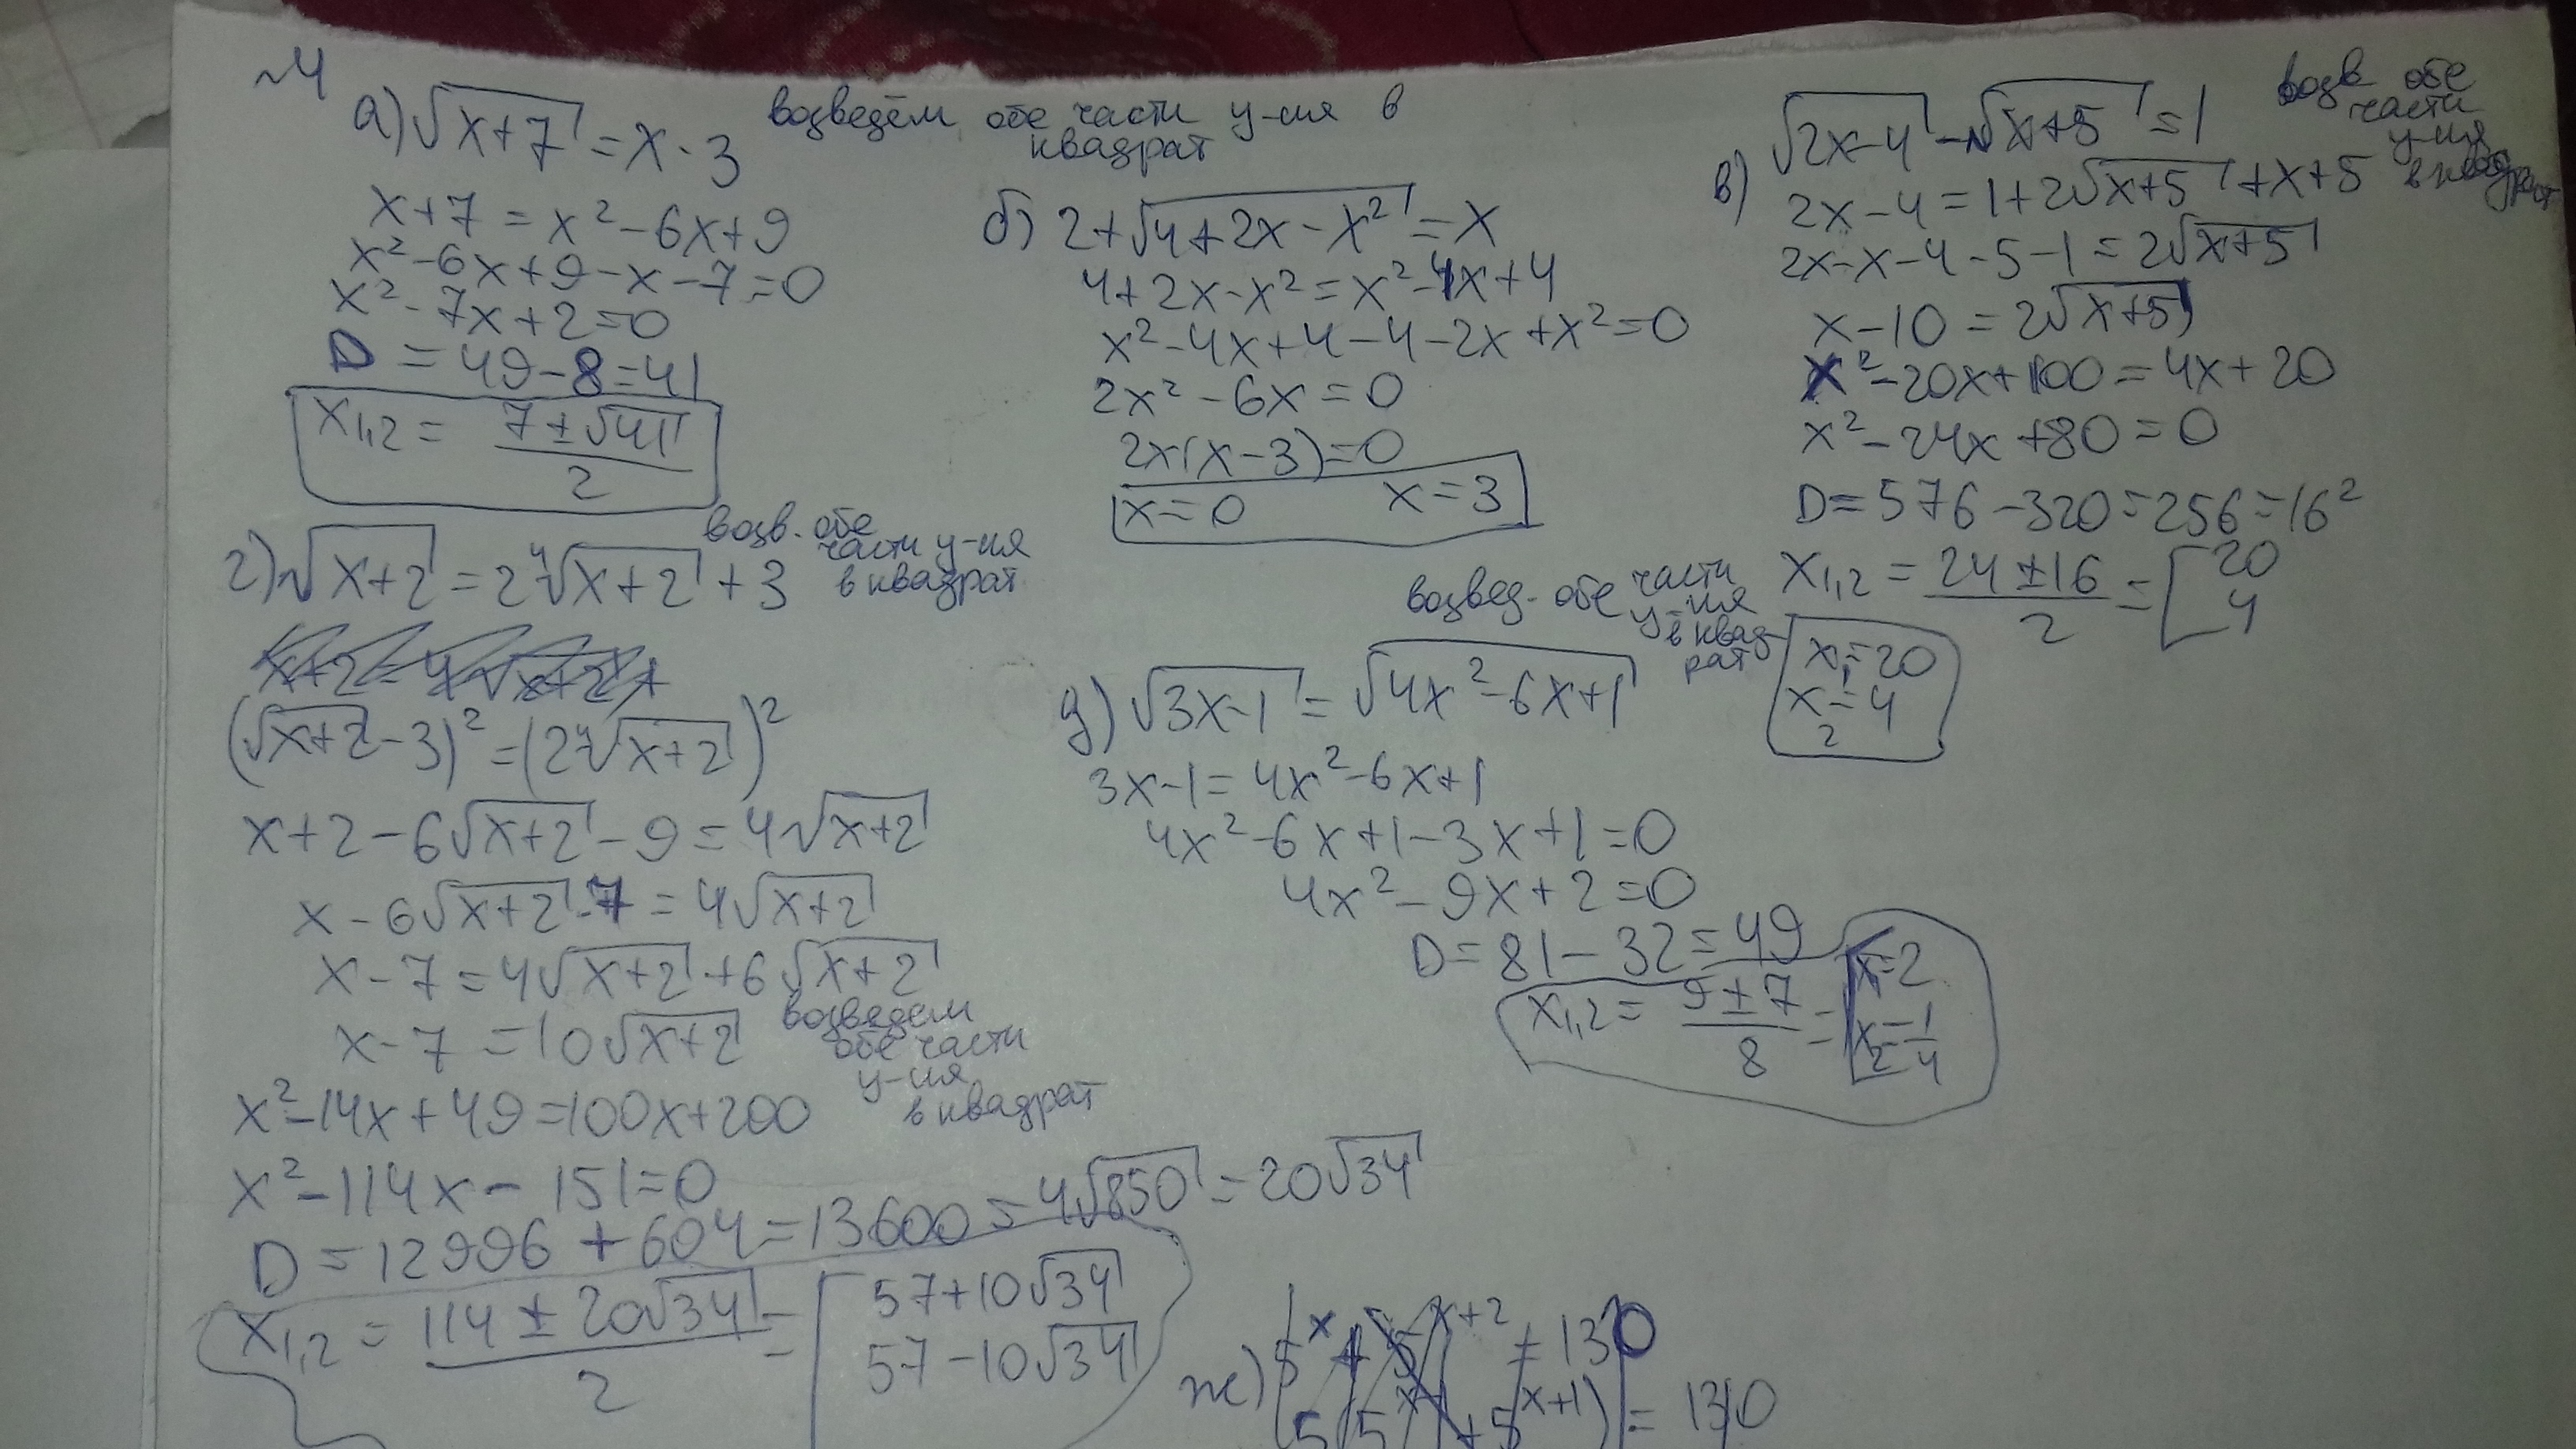 ~4
а) √(x+7) = x - 3 возведём обе части у-ия в
квадрат
x+7 = x² - 6x+9
x² - 6x + 9 - x - 7 = 0
x² - 7x + 2 = 0
D = 49 - 8 = 41
x₁,₂ = (7 ± √41)/2
б) 2+√(4+2x-x²) = x
4+2x-x² = x² - 4x + 4
x² - 4x + 4 - 4 - 2x + x² = 0
2x² - 6x = 0
2x(x-3) = 0
x = 0 x = 3
в) √(2x-4) - √(x+5) = 1 возв обе
части
у-ия
в квадрат
2x-4 = 1+2√(x+5) + x+5
2x-x-4-5-1 = 2√(x+5)
x-10 = 2√(x+5)
x² - 20x + 100 = 4x + 20
x² - 24x + 80 = 0
D = 576 - 320 = 256 = 16²
x₁,₂ = (24 ± 16)/2 = [20
4
x₁ = 20
x₂ = 4
г) √(x+2) = 2⁴√(x+2) + 3 возв. обе
части у-ия
в квадрат
(√(x+2) - 3)² = (2⁴√(x+2))²
x+2-6√(x+2) - 9 = 4√(x+2)
x - 6√(x+2) - 7 = 4√(x+2)
x - 7 = 4√(x+2) + 6√(x+2)
x - 7 = 10√(x+2) возведем
обе части
у-ия
в квадрат
x² - 14x + 49 = 100x + 200
x² - 114x - 151 = 0
D = 12996 + 604 = 13600 = 4√850 = 20√34
x₁,₂ = (114 ± 20√34)/2 = [57+10√34
57-10√34
возвед. обе части
у-ия
в квад-
рат
д) √(3x-1) = √(4x²-6x+1)
3x-1 = 4x²-6x+1
4x²-6x+1-3x+1 = 0
4x² - 9x + 2 = 0
D = 81 - 32 = 49
x₁,₂ = (9 ± 7)/8 = [x₁ = 2
x₂ = 1/4
ж) 5ˣ + 5ˣ⁺² = 130
= 130